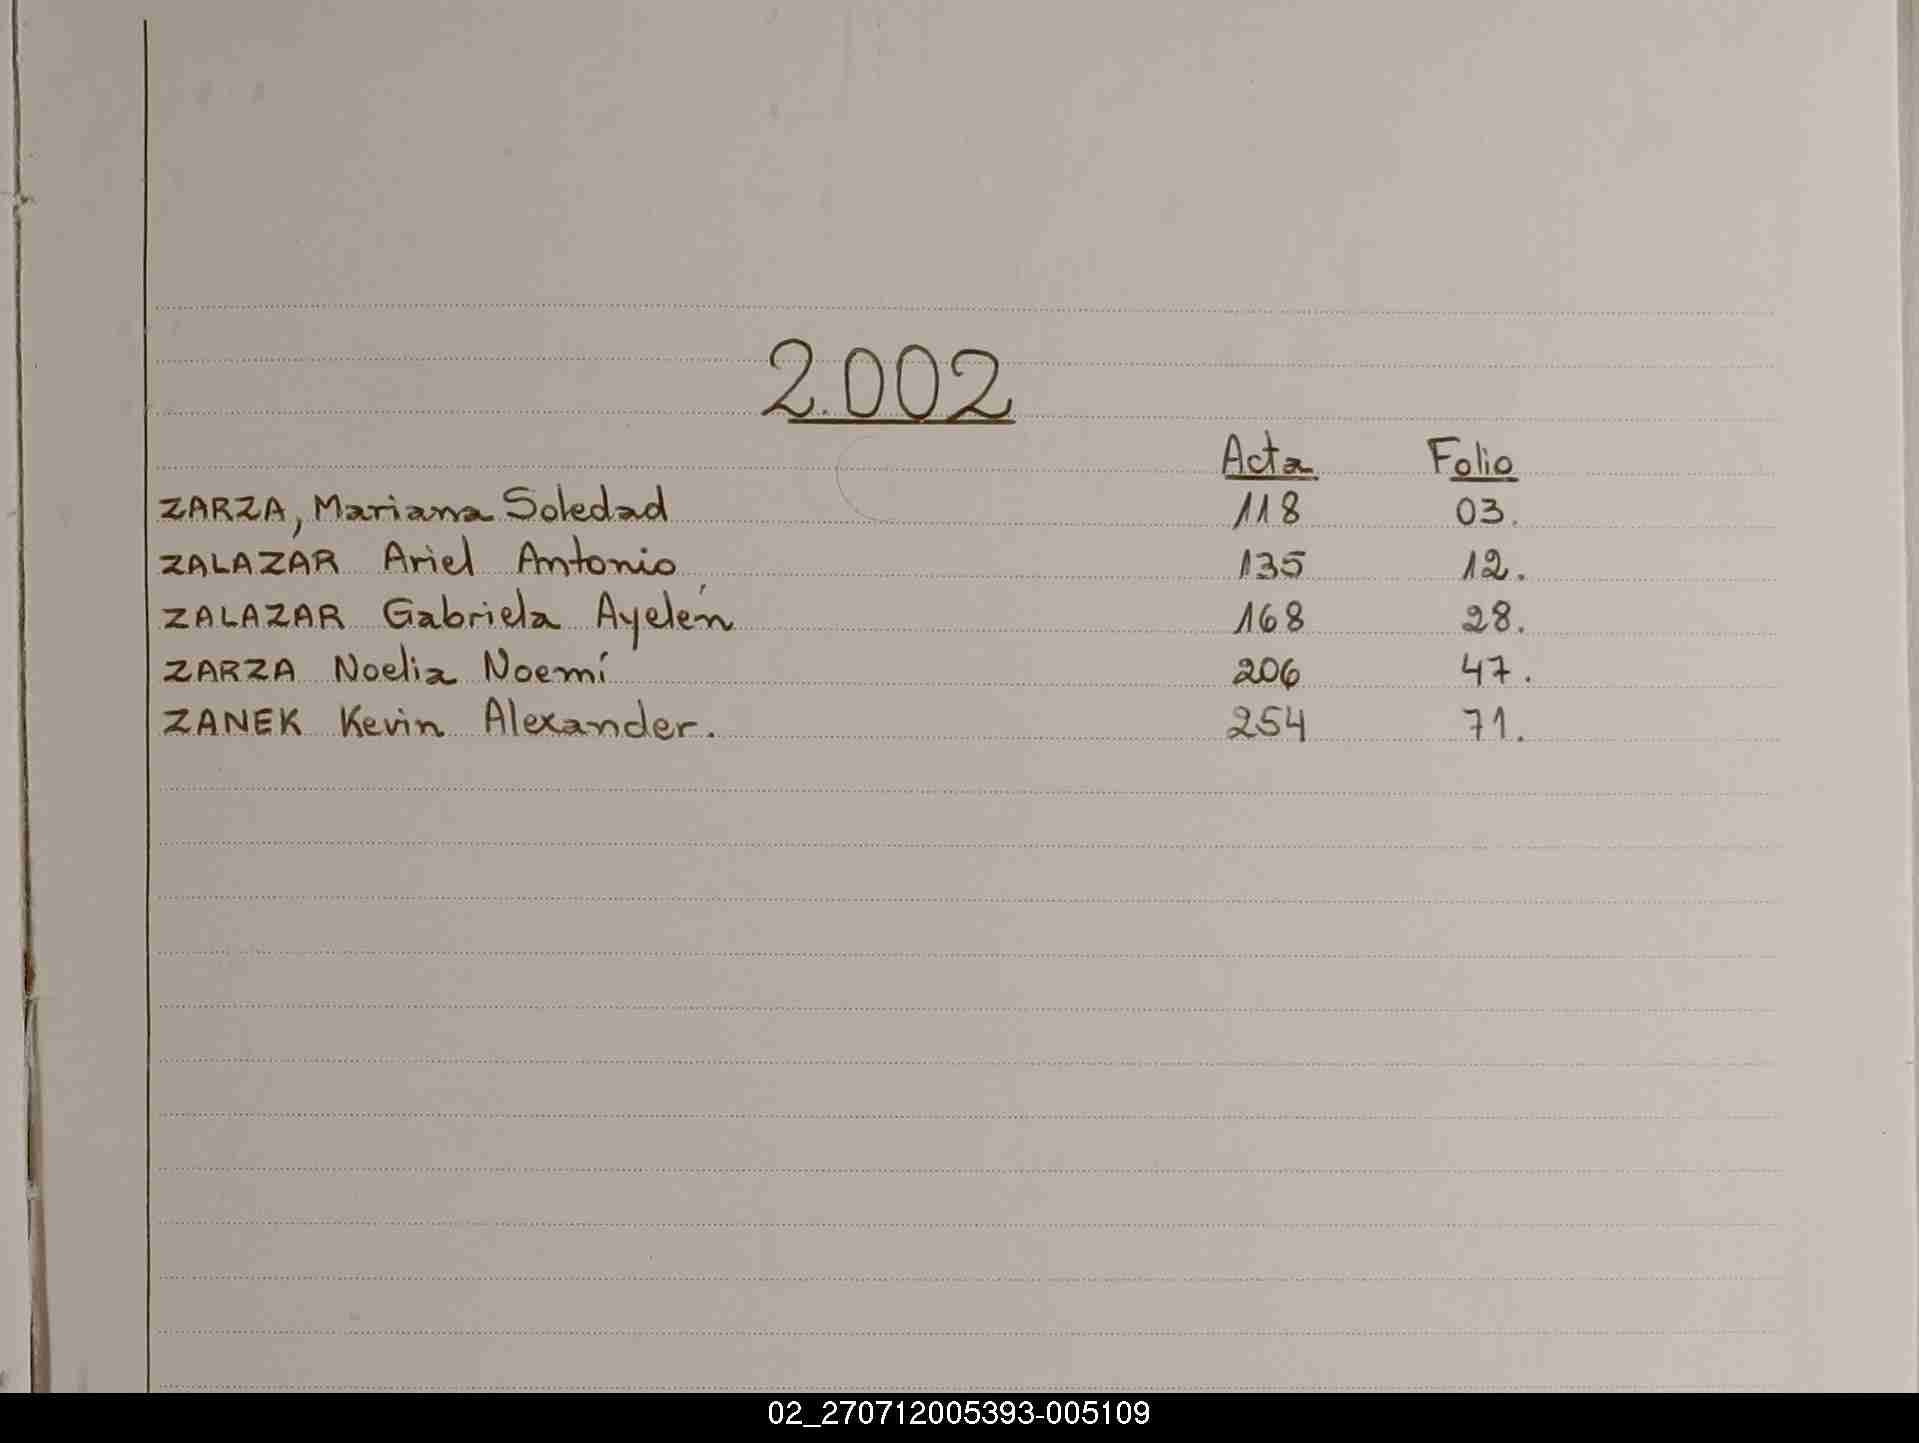 2.002
Acta Folio
ZARZA, Mariana Soledad 118 03.
ZALAZAR Ariel Antonio 135 12.
ZALAZAR Gabriela Ayelén 168 28.
ZARZA Noelia Noemí 206 47.
ZANEK Kevin Alexander. 254 71.
02_270712005393-005109